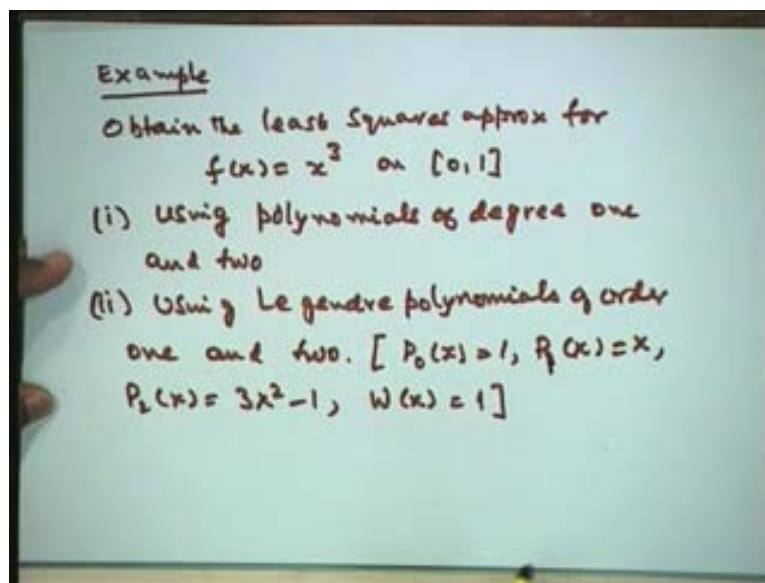 Example
Obtain the least squares approx for
f(x) = x³ on [0,1]
(i) using polynomials of degree one
and two
(ii) Using Legendre polynomials of order
one and two. [ P₀(x) = 1, P₁(x) = x,
P₂(x) = 3x² - 1, W(x) = 1 ]